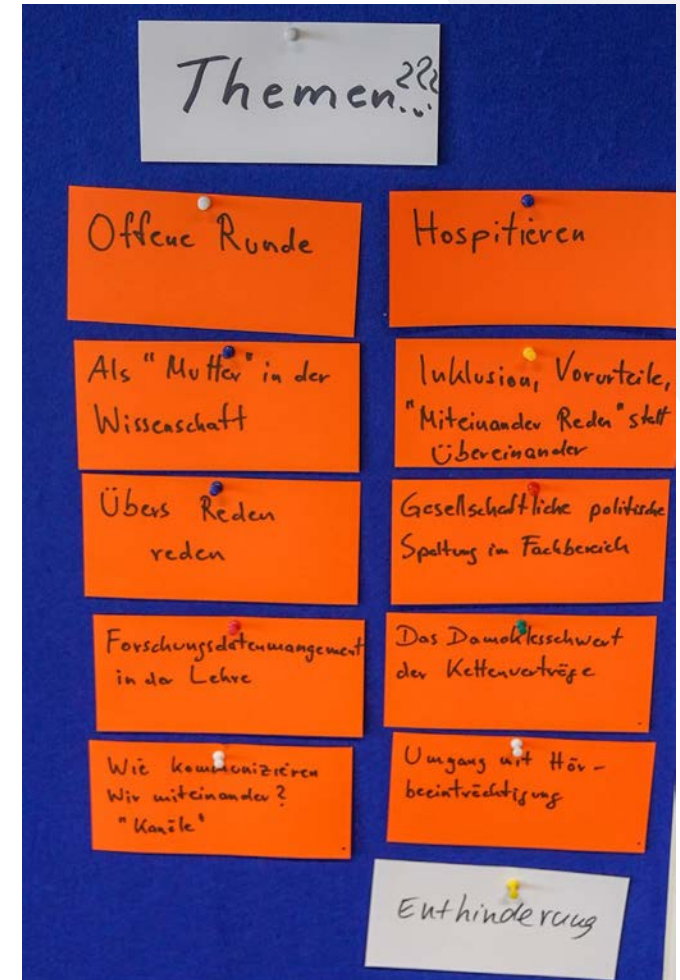 Themen...???
Offene Runde
Als "Mutter" in der
Wissenschaft
Übers Reden
reden
Forschungsdatenmangement
in der Lehre
Wie kommunizieren
Wir miteinander?
"Kanäle"
Hospitieren
Inklusion, Vorurteile,
"Miteinander Reden" statt
Übereinander
Gesellschaftliche politische
Spaltung im Fachbereich
Das Damoklesschwert
der Kettenverträge
Umgang mit Hör-
beeinträchtigung
Enthinderung